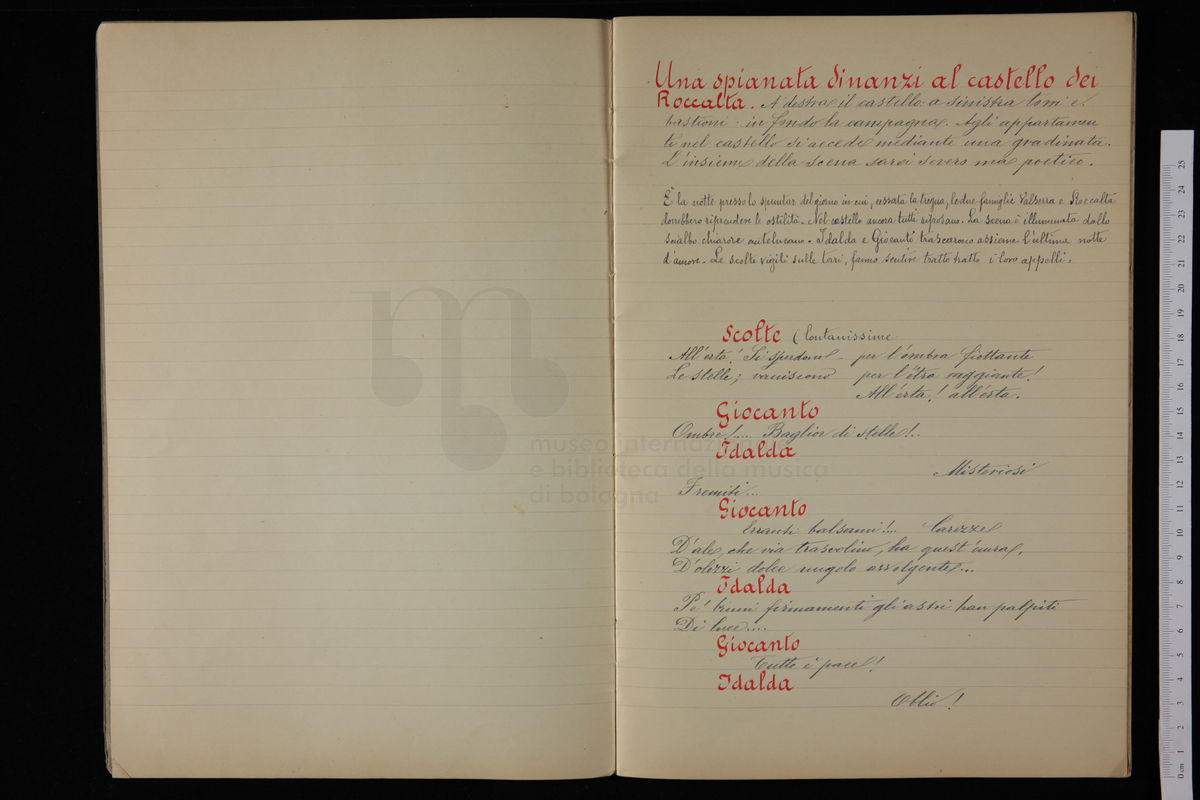 Una spianata dinanzi al castello dei
Roccalta. A destra il castello: a sinistra torri e
bastioni: in fondo la campagna. Agli appartamen
ti nel castello si accede mediante una gradinata.
L'insieme della scena sarà severo ma poetico.
È la notte presso lo spuntar del giorno in cui, cessata la tregua, le due famiglie Valserra e Roccalta
dovrebbero riprendere le ostilità. Nel castello ancora tutti riposano. La scena è illuminata dallo
scialbo chiarore antelucano. Idalda e Giocanto trascorrono assieme l'ultima notte
d'amore. Le scolte vigili sulle torri, fanno sentire tratto tratto i loro appelli.
Scolte (lontanissime
All'erta! Si sperdono - per l'ombra fiottante
Le stelle; vaniscono per l'etra raggiante!
All'erta! all'erta.
Giocanto
Ombre!.... Baglior di stelle!..
Idalda
Misteriosi
Fremiti...
Giocanto
Erranti balsami!... Carezze
D'ale, che via trasvolino, ha quest'aura,
D'olezzi dolce nugolo avvolgente...
Idalda
Pe' bruni firmamenti gli astri han palpiti
Di luce....
Giocanto
Tutto è pace!
Idalda
Oblio!
museo internazionale
e biblioteca della musica
di bologna
0 cm 1 2 3 4 5 6 7 8 9 10 11 12 13 14 15 16 17 18 19 20 21 22 23 24 25